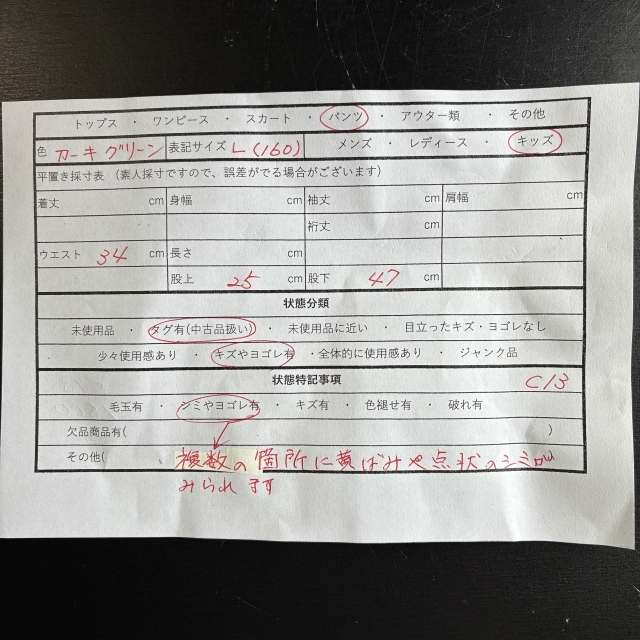 トップス ・ ワンピース ・ スカート ・ パンツ ・ アウター類 ・ その他
色 カーキグリーン 表記サイズ L(160) メンズ ・ レディース ・ キッズ
平置き採寸表 (素人採寸ですので、誤差がでる場合がございます)
着丈 cm 身幅 cm 袖丈 cm 肩幅 cm
裄丈 cm
ウエスト 34 cm 長さ cm
股上 25 cm 股下 47 cm
状態分類
未使用品 ・ タグ有(中古品扱い) ・ 未使用品に近い ・ 目立ったキズ・ヨゴレなし
少々使用感あり ・ キズやヨゴレ有 ・全体的に使用感あり ・ ジャンク品
状態特記事項 C13
毛玉有 ・ シミやヨゴレ有 ・ キズ有 ・ 色褪せ有 ・ 破れ有
欠品商品有( )
その他( ・複数の箇所に黄ばみや点状のシミが
みられます